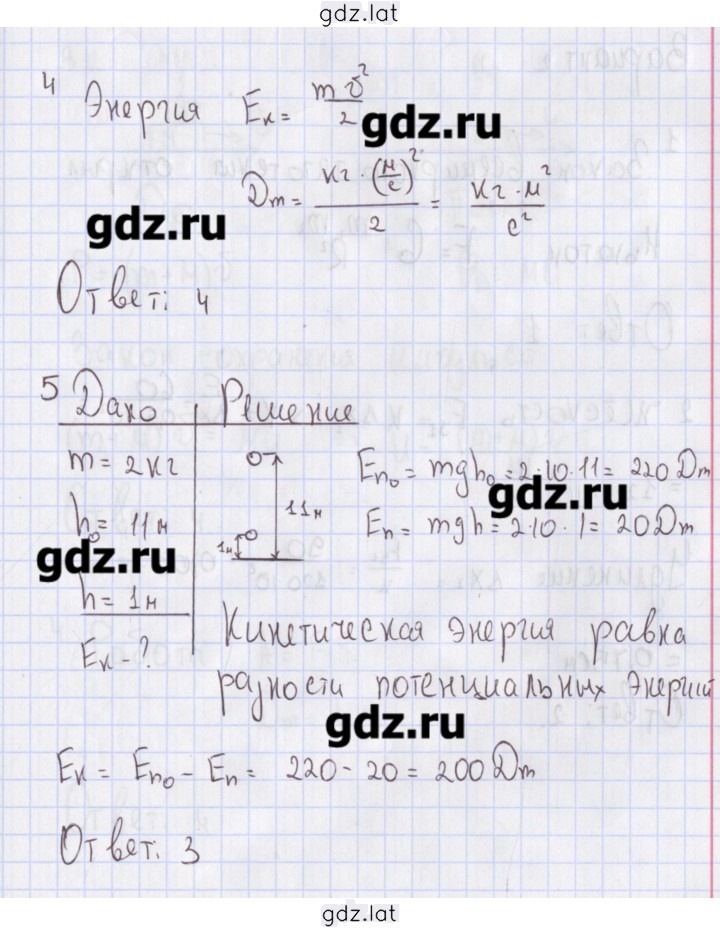 gdz.lat
4 Энергия Eк = mv²/2
gdz.ru
Дж = кг·(м/с)²/2 = кг·м²/с²
gdz.ru
Ответ: 4
5 Дано Решение
m = 2кг
h₀ = 11м
h = 1м
Eк - ?
11м
1м
Eп₀ = mgh₀ = 2·10·11 = 220 Дж
gdz.ru
Eп = mgh = 2·10·1 = 20Дж
gdz.ru
Кинетическая энергия равна
разности потенциальных энергий
gdz.ru
Eк = Eп₀ - Eп = 220 - 20 = 200 Дж
Ответ: 3
gdz.lat